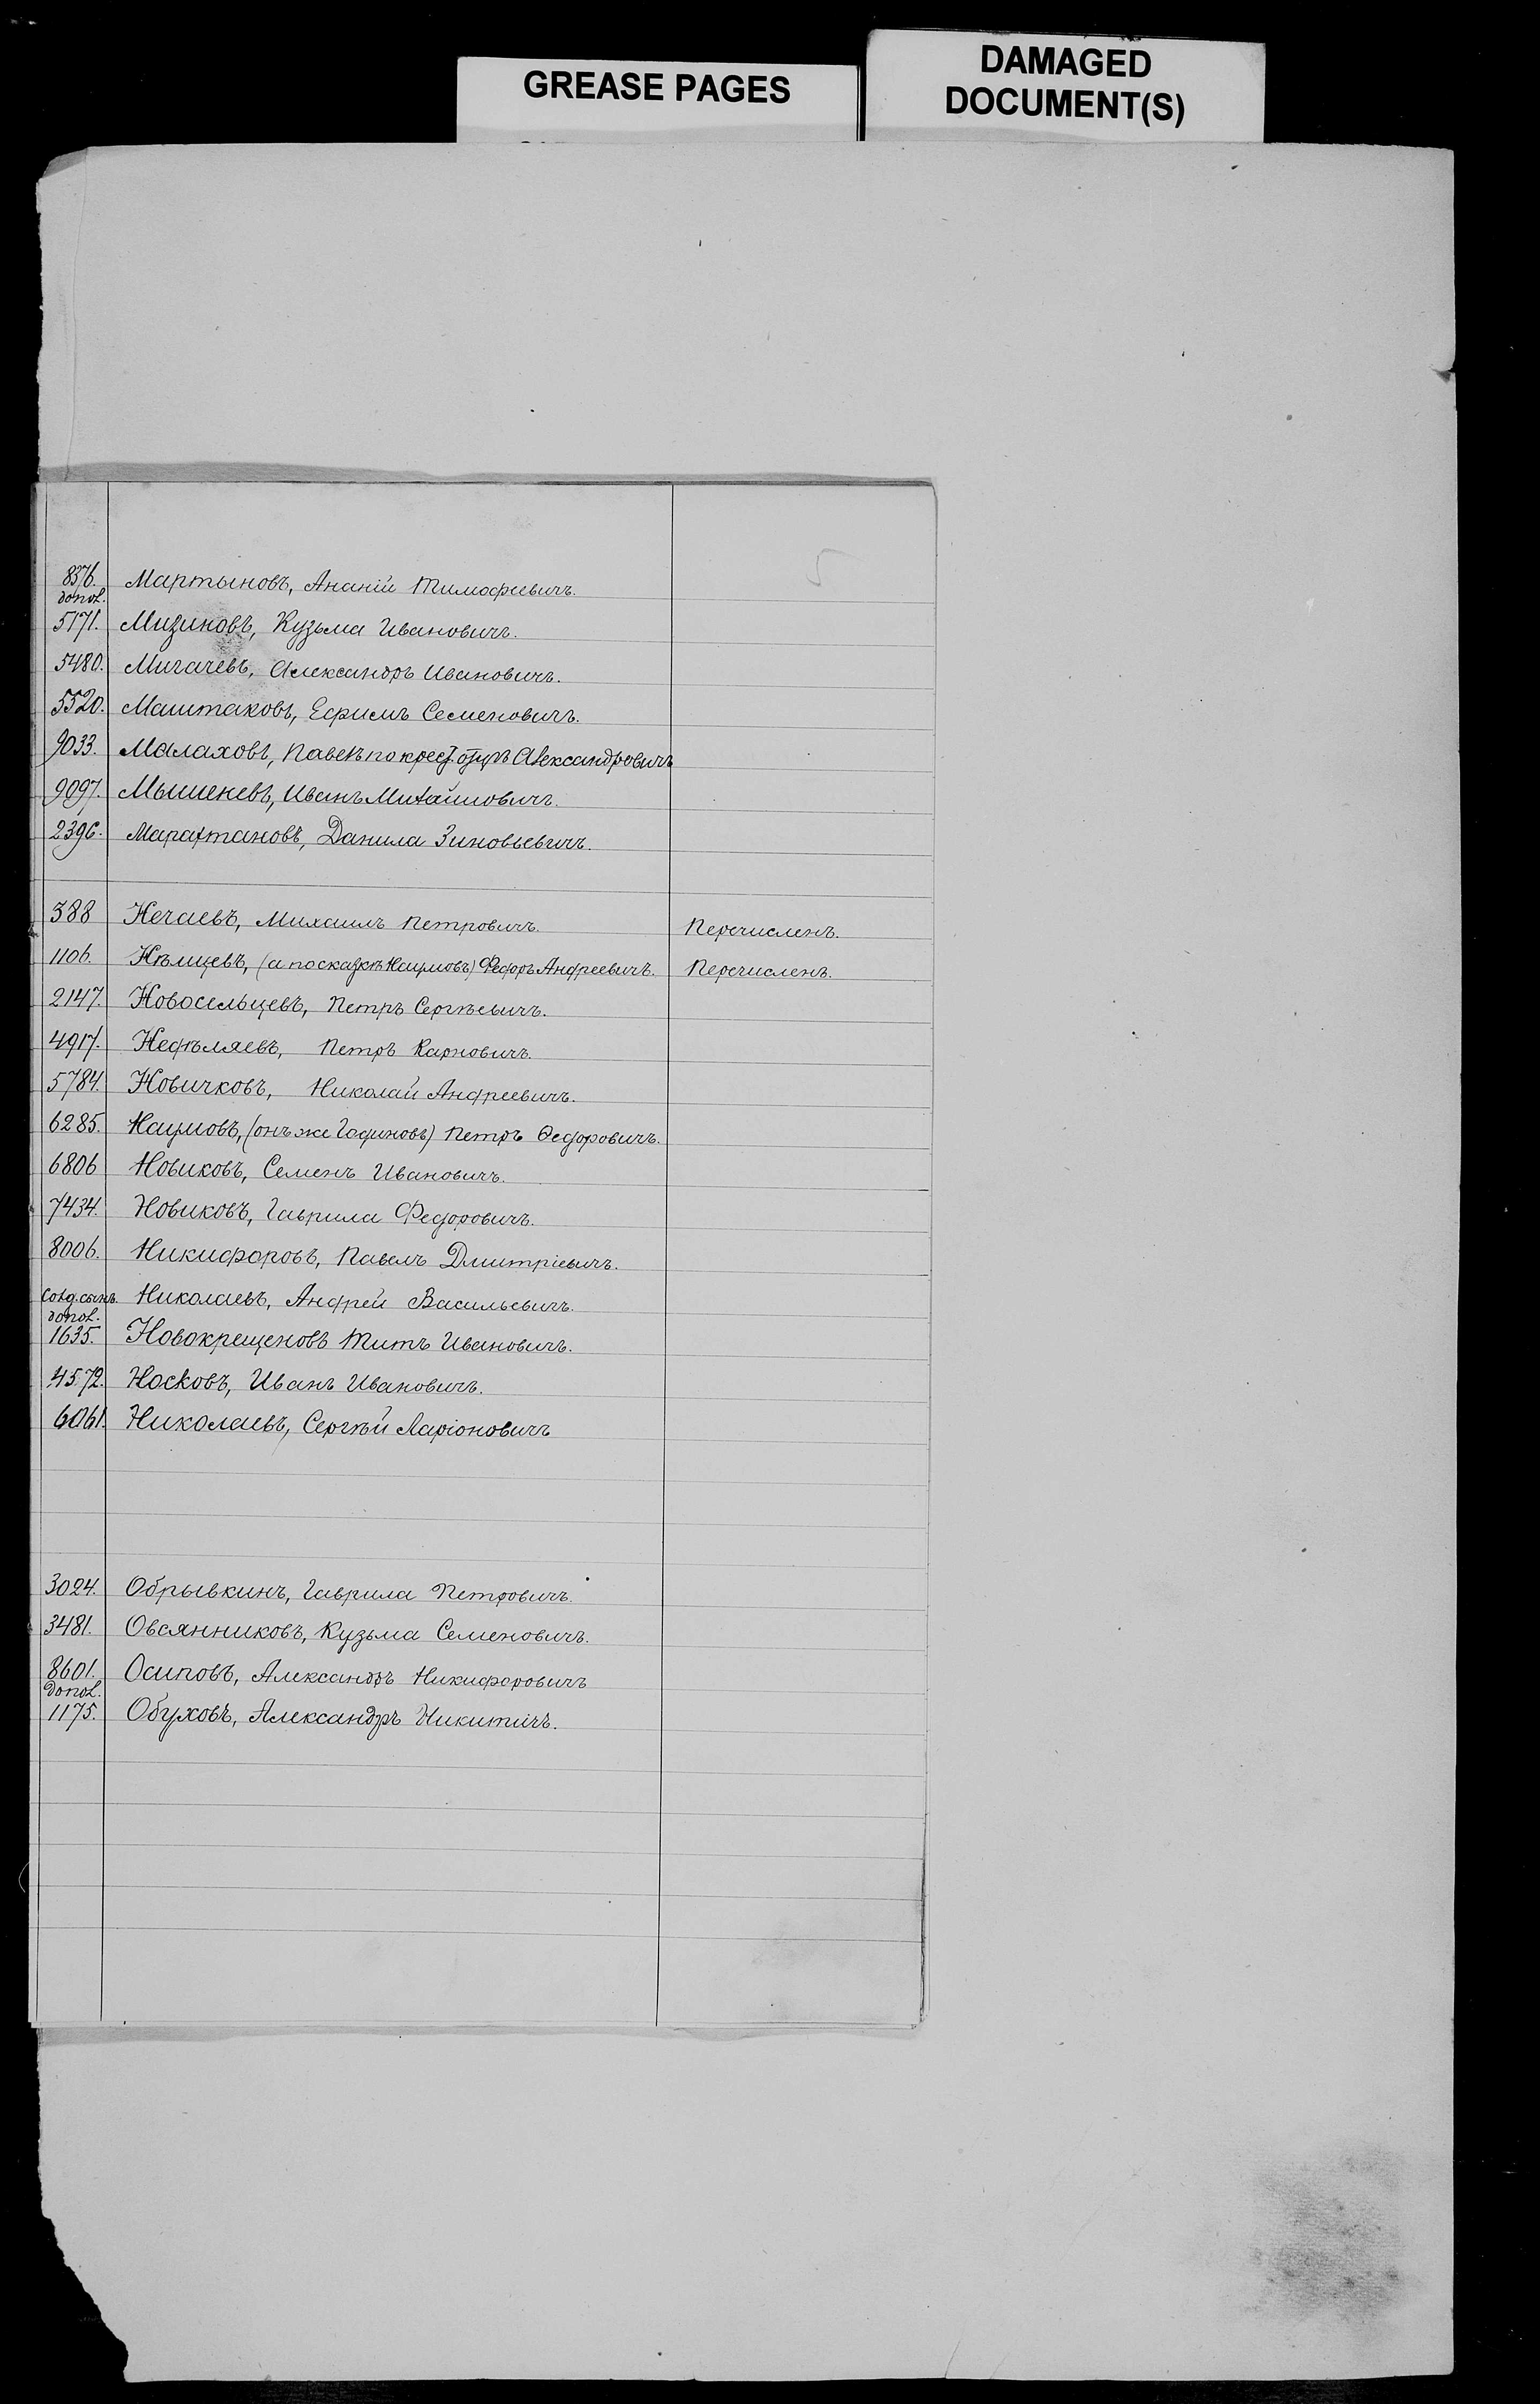 GREASE PAGES
DAMAGED
DOCUMENT(S)
5
8376. Мартыновъ, Ананій Тимофеевичъ.
допол.
5171. Мизиновъ, Кузьма Ивановичъ.
5480. Мигачевъ, Александръ Ивановичъ.
5520. Маштаковъ, Ефимъ Семеновичъ.
9033. Малаховъ, Павелъ по крест. отцу Александровичъ
9097. Мышеневъ, Иванъ Михайловичъ.
2396. Марахтановъ, Данила Зиновьевичъ.
388 Нечаевъ, Михаилъ Петровичъ. Перечисленъ.
1106. Нѣмцевъ, (а по сказкѣ Наумовъ) Федоръ Андреевичъ. Перечисленъ.
2147. Новосельцевъ, Петръ Сергѣевичъ.
4917. Нефѣляевъ, Петръ Карповичъ.
5784. Новичковъ, Николай Андреевичъ.
6285. Наумовъ, (онъ же Гадиновъ) Петръ Ѳедоровичъ.
6806 Новиковъ, Семенъ Ивановичъ.
7434. Новиковъ, Гаврила Федоровичъ.
8006. Никифоровъ, Павелъ Дмитріевичъ.
Солд. сынъ. Николаевъ, Андрей Васильевичъ.
допол.
1635. Новокрещеновъ Титъ Ивановичъ.
4572. Носковъ, Иванъ Ивановичъ.
6061. Николаевъ, Сергѣй Ларіоновичъ
3024. Обрывкинъ, Гаврила Петровичъ.
3481. Овсянниковъ, Кузьма Семеновичъ.
8601. Осиповъ, Александръ Никифоровичъ
Допол.
1175. Обуховъ, Александръ Никитичъ.